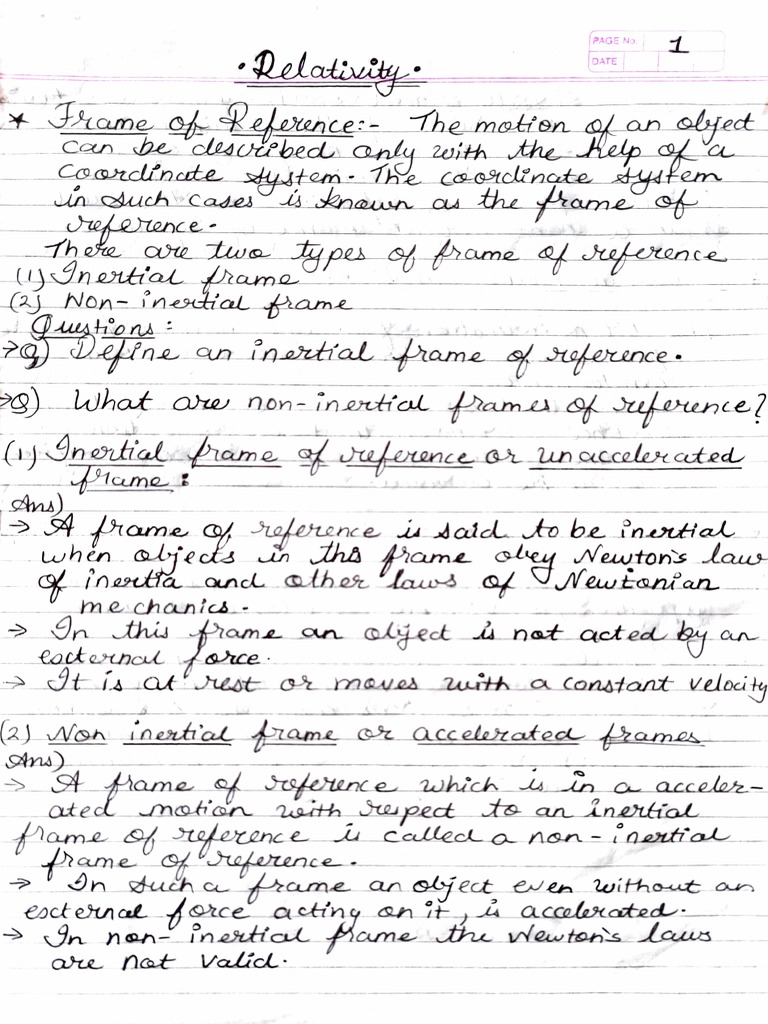 PAGE No. 1
DATE
• Relativity •
* Frame of Reference:- The motion of an object
can be described only with the help of a
coordinate system. The coordinate system
in such cases is known as the frame of
reference.
There are two types of frame of reference
(1) Inertial frame
(2) Non-inertial frame
Questions:
→Q) Define an inertial frame of reference.
→Q) What are non-inertial frames of reference?
(1) Inertial frame of reference or unaccelerated
frame:
Ans)
→ A frame of reference is said to be inertial
when objects in this frame obey Newton's law
of inertia and other laws of Newtonian
mechanics.
→ In this frame an object is not acted by an
external force.
→ It is at rest or moves with a constant velocity
(2) Non inertial frame or accelerated frames
Ans)
→ A frame of reference which is in a acceler-
ated motion with respect to an inertial
frame of reference is called a non-inertial
frame of reference.
→ In such a frame an object even without an
external force acting on it, is accelerated.
→ In non-inertial frame the Newton's laws
are not valid.